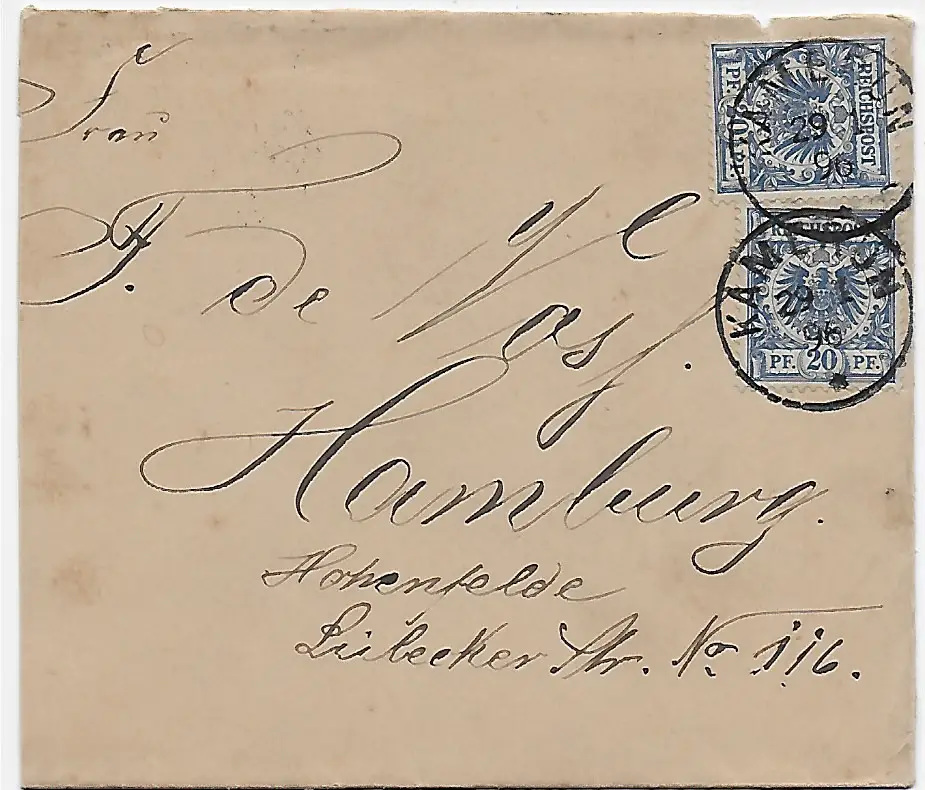 Frau
F. de Voss.
Hamburg.
Hohenfelde
Lübecker Str. No 116.
REICHSPOST
PF. 20 PF.
KAMERUN
29 1
96
REICHSPOST
PF. 20 PF.
KAMERUN
29 1
96